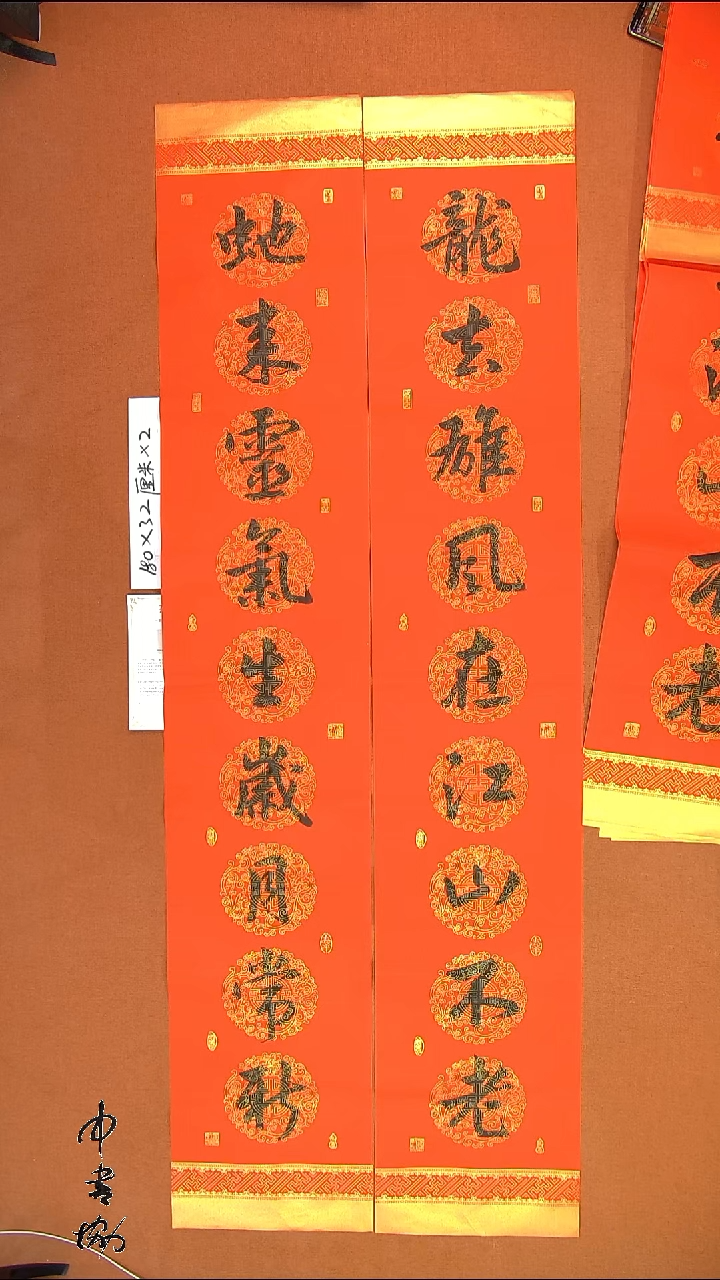 龍去雄風在江山不老
蛇来靈氣生歲月常新
180×32厘米×2
中书协
老